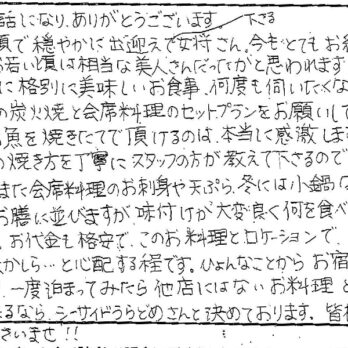 話になり、ありがとうございます 下さる
頃で穏やかに出迎えて女将さん、今もとてもお綺
お若い頃は相当な美人さんだったかと思われます
に格別に美味しいお食事、何度も伺いたくな
の炭火焼と会席料理のセットプランをお願いして
魚を焼きたてで頂けるのは、本当に感激します
の焼き方を丁寧にスタッフの方が教えて下さるので
また会席料理のお刺身や天ぷら、冬には小鍋な
お膳に並びますが味付けが大変良く何を食べ
、お代金も格安で、このお料理とロケーションで、
いかしら…と心配する程です。ひょんなことからお宿
、一度泊まってみたら他店にはないお料理と
まるなら、シーサイドうらどめさんと決めております、皆様
さいませ!!